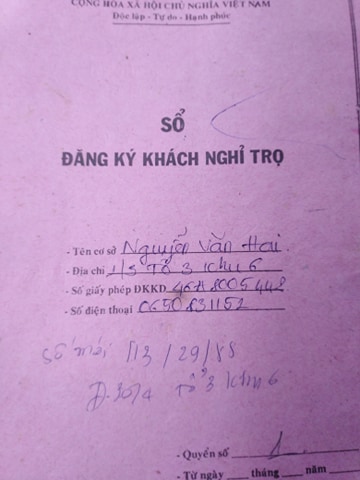 CỘNG HÒA XÃ HỘI CHỦ NGHĨA VIỆT NAM
Độc lập - Tự do - Hạnh phúc
SỔ
ĐĂNG KÝ KHÁCH NGHỈ TRỌ
- Tên cơ sở Nguyễn Văn Hai
- Địa chỉ 1/3 Tổ 3 Khu 6
- Số giấy phép ĐKKD 46H8005442
- Số điện thoại 0650831152
số mới 113/29/88
Tổ 3 Khu 6
- Quyển số 1
- Từ ngày tháng năm